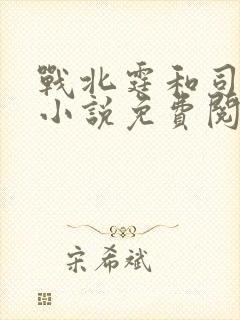 戰北霆和司
小說免費閱
宋希斌